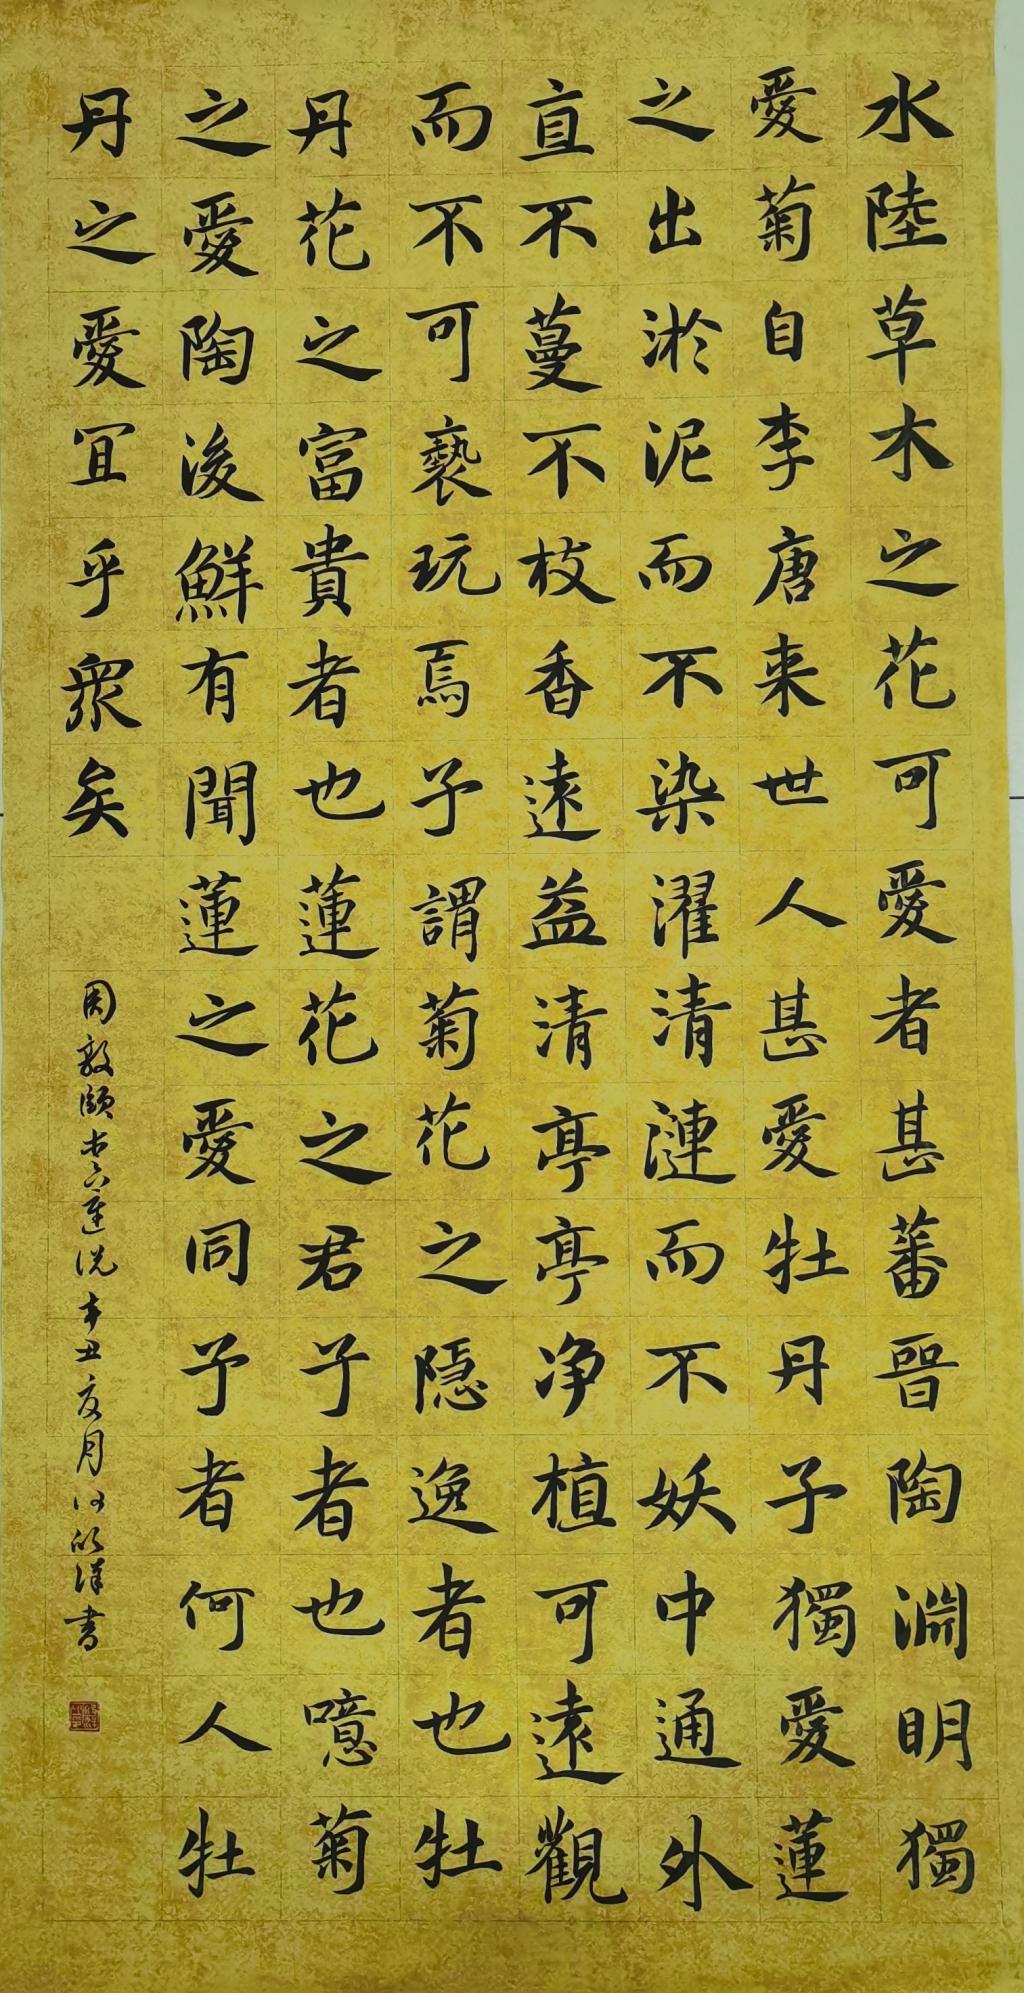 水陸草木之花可愛者甚蕃晉陶淵明獨
愛菊自李唐来世人甚愛牡丹予獨愛蓮
之出淤泥而不染濯清漣而不妖中通外
直不蔓不枝香遠益清亭亭净植可遠觀
而不可褻玩焉予謂菊花之隱逸者也牡
丹花之富貴者也蓮花之君子者也噫菊
之愛陶後鮮有聞蓮之愛同予者何人牡
丹之愛宜乎衆矣
周敦頤 愛蓮说 辛丑 月 书